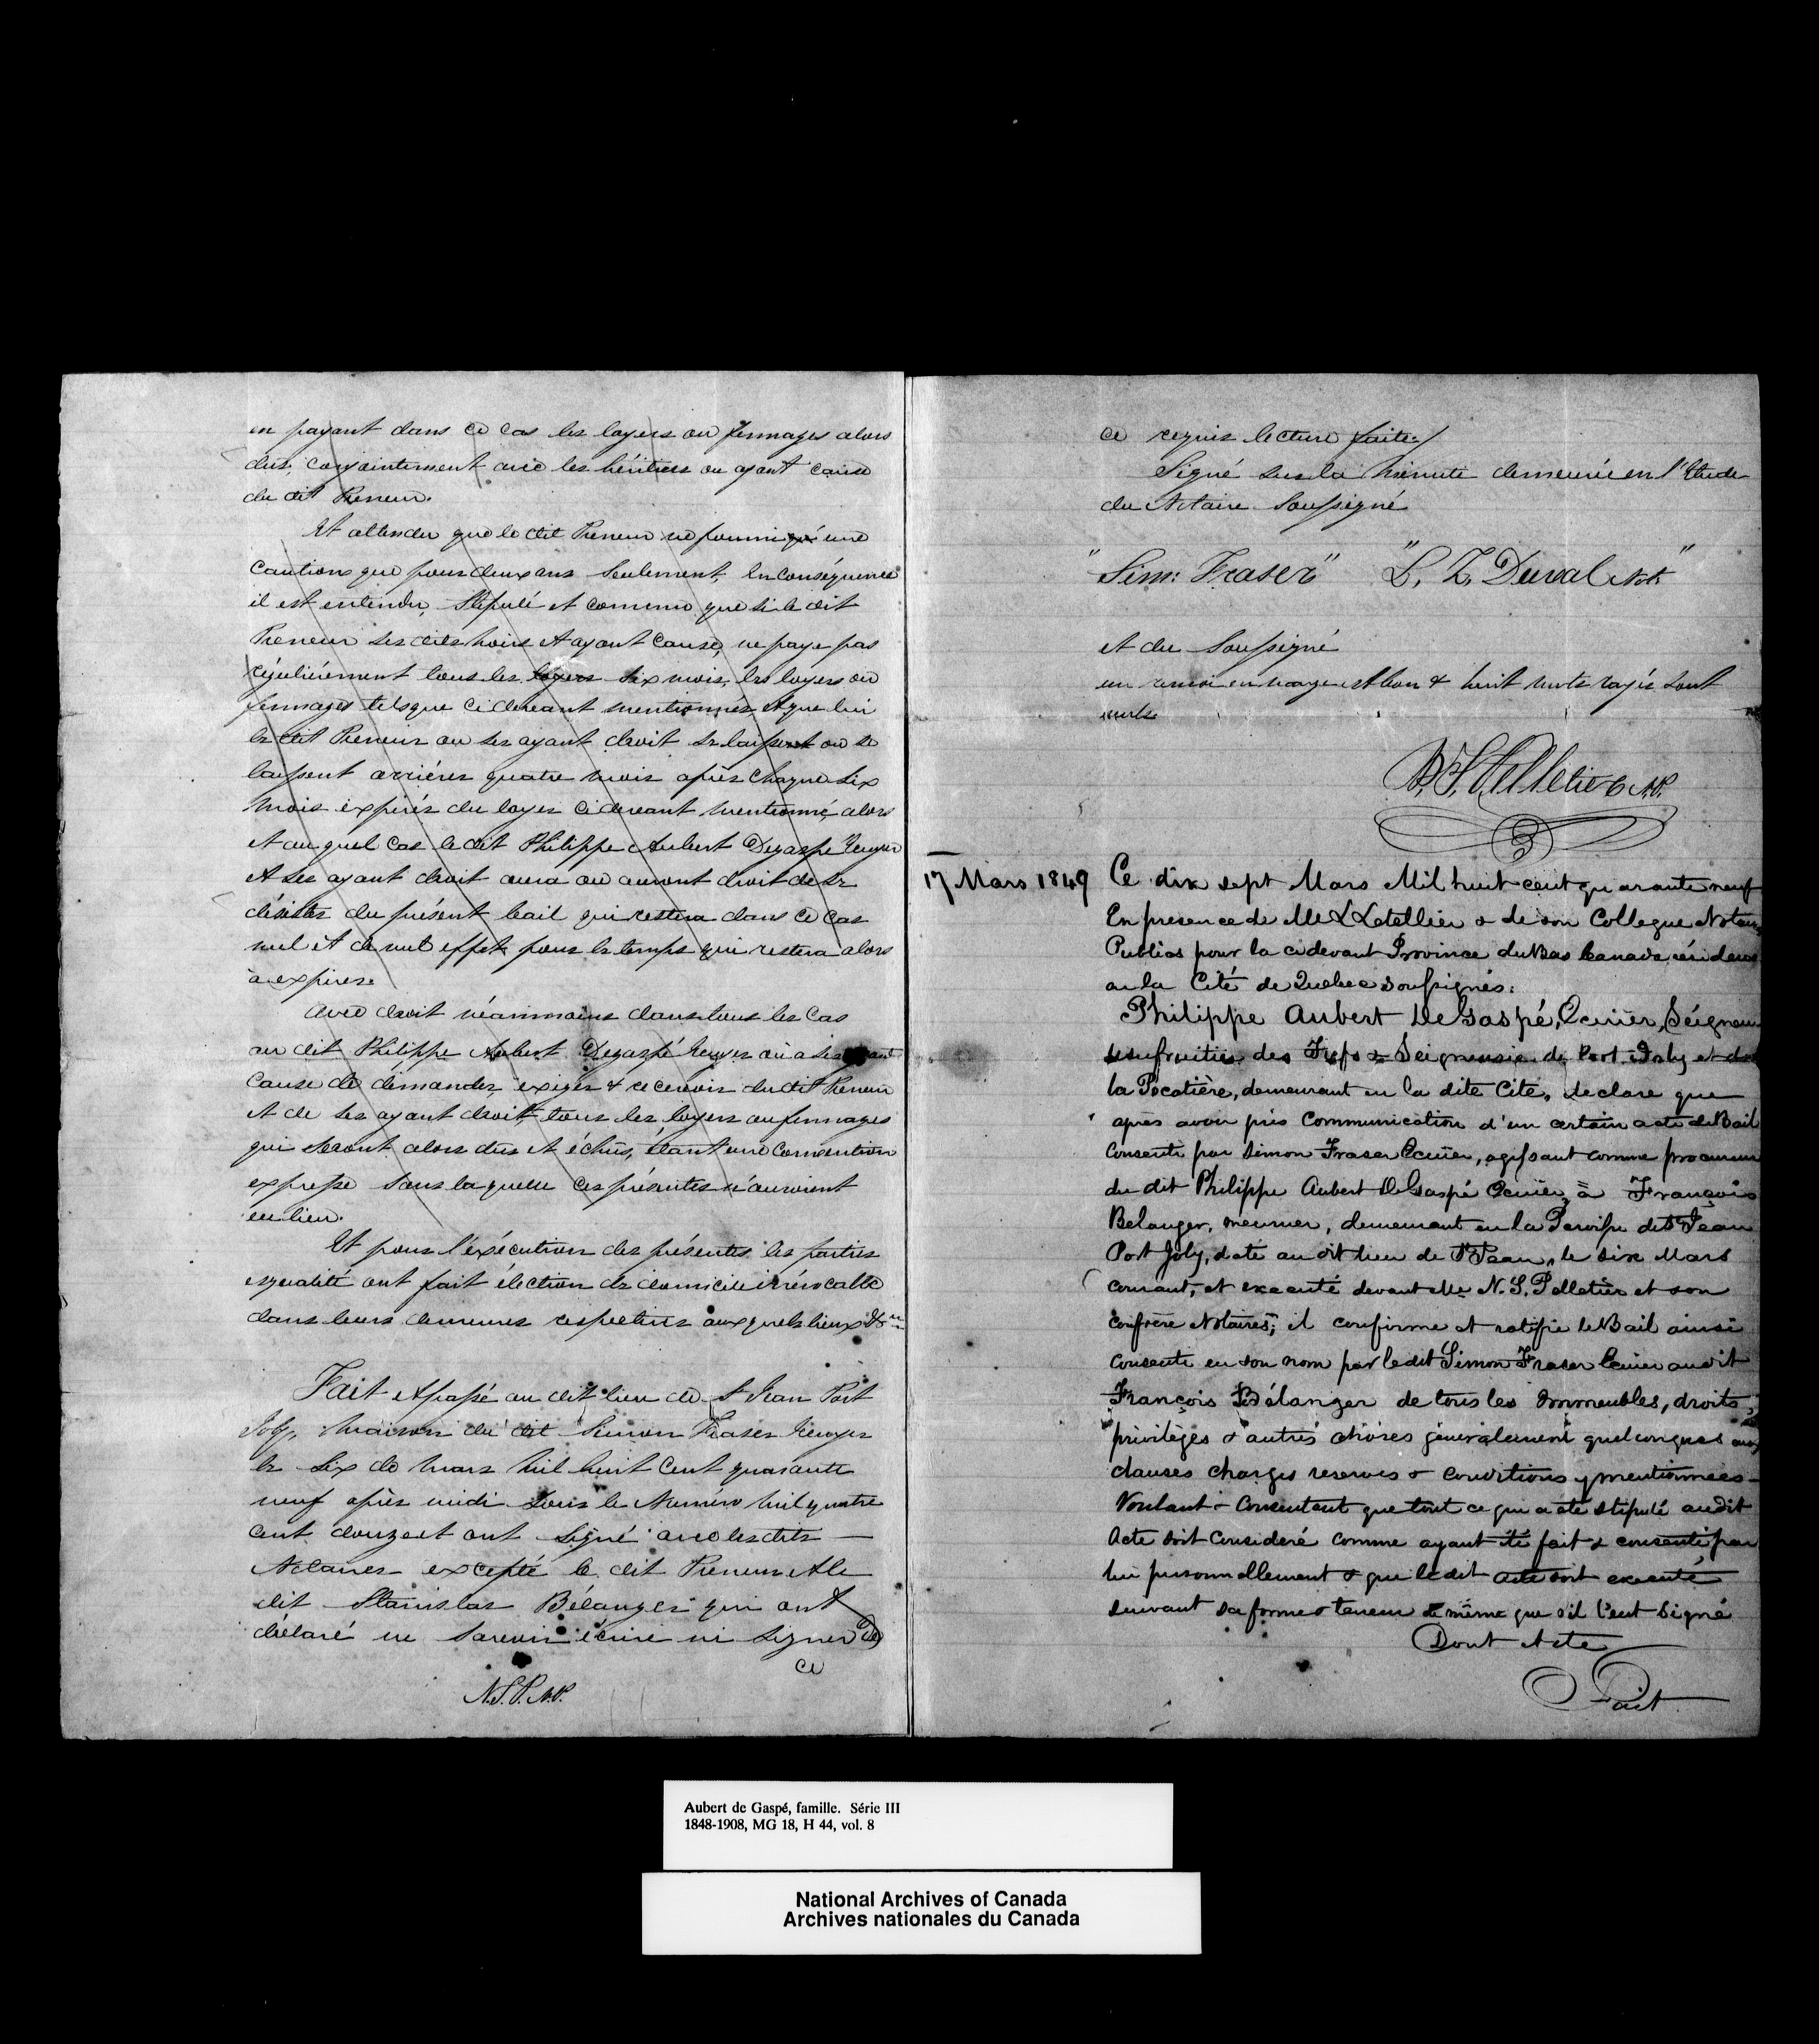 en payant dans ce cas les loyers ou fermages alors
dus, conjointement avec les héritiers ou ayant cause
du dit Preneur.
Et attendu que le dit Preneur ne fourni une
caution que pour deux ans seulement, en conséquence
il est entendu, stipulé et convenu que si le dit
Preneur ses dits hoirs et ayant cause, ne paye pas
régulièrement tous les loyers six mois, les loyers ou
fermages tels que ci devant mentionnés, et que lui
le dit Preneur ou ses ayant droit se laissent ou se
laissent arriérer quatre mois après chaque six
mois expirés du loyer ci devant mentionné, alors
et au quel cas le dit Philippe Aubert Degaspé Ecuyer
et ses ayant droit aura ou auront droit de se
désister du présent bail qui restera dans ce cas
nul et de nul effet pour le temps qui restera alors
à expirer.
Avec droit néanmoins dans tous les cas
au dit Philippe Aubert Degaspé Ecuyer ou à ses ayant
cause de demander, exiger & recevoir du dit Preneur
et de ses ayant droit, tous les loyers ou fermages
qui seront alors dus et échus, étant une convention
expresse sans laquelle ces présentes n'auroient
eu lieu.
Et pour l'exécution des présentes les parties
esqualité ont fait élection de domicile irrévocable
dans leurs demeures respectives auxquels lieux &c
Fait et passé au dit lieu de St Jean Port
Joly, maison du dit Simon Fraser Ecuyer
le six de mars mil huit cent quarante
neuf après midi sous le Numéro mil quatre
cent douze et ont signé avec les dits
Notaires excepté le dit Preneur et le
dit Stanislas Bélanger qui ont
déclaré ne savoir écrire ni signer de
ce
N.S.P. N.P.
ce requis lecture faite./
Signé sur la minute demeurée en l'Etude
du Notaire soussigné
"Sim: Fraser" "L. Z. Duval Not."
et du soussigné
un renvoi en marge est bon & huit mots rayés sont
nuls
N. S. Pelletier N.P.
17 Mars 1849
Ce dix sept Mars Mil huit cent quarante neuf
En presence de Me L Letellier & de son Collegue Notaires
Publics pour la cidevant Province du Bas Canada résidens
en la Cité de Quebec soussignés:
Philippe Aubert DeGaspé, Ecuier, Séigneur
usufruitier des Fiefs & Seigneurie de Port Joly et de
la Pocatière, demeurant en la dite Cité, declare que
après avoir pris Communication d'un certain acte de Bail
consenti par Simon Fraser Ecuier, agissant comme procureur
du dit Philippe Aubert DeGaspé Ecuier, à François
Belanger, meunier, demeurant en la Paroisse de St Jean
Port Joly, daté au dit lieu de St Jean, le six Mars
courant, et executé devant Me N. S. Pelletier et son
confrère Notaires; il confirme et ratifie le Bail ainsi
consenti en son nom par le dit Simon Fraser Ecuier au dit
François Bélanger de tous les Immeubles, droits,
privilèges & autres choses généralement quelconques aux
clauses charges reserves & conditions y mentionnees
Voulant & Consentant que tout ce qui a été stipulé au dit
Acte soit consideré comme ayant été fait & consenti par
lui personnellement & que le dit acte soit executé
suivant sa forme & teneur de même que s'il l'eut signé
Dont Acte
Fait
Aubert de Gaspé, famille. Série III
1848-1908, MG 18, H 44, vol. 8
National Archives of Canada
Archives nationales du Canada